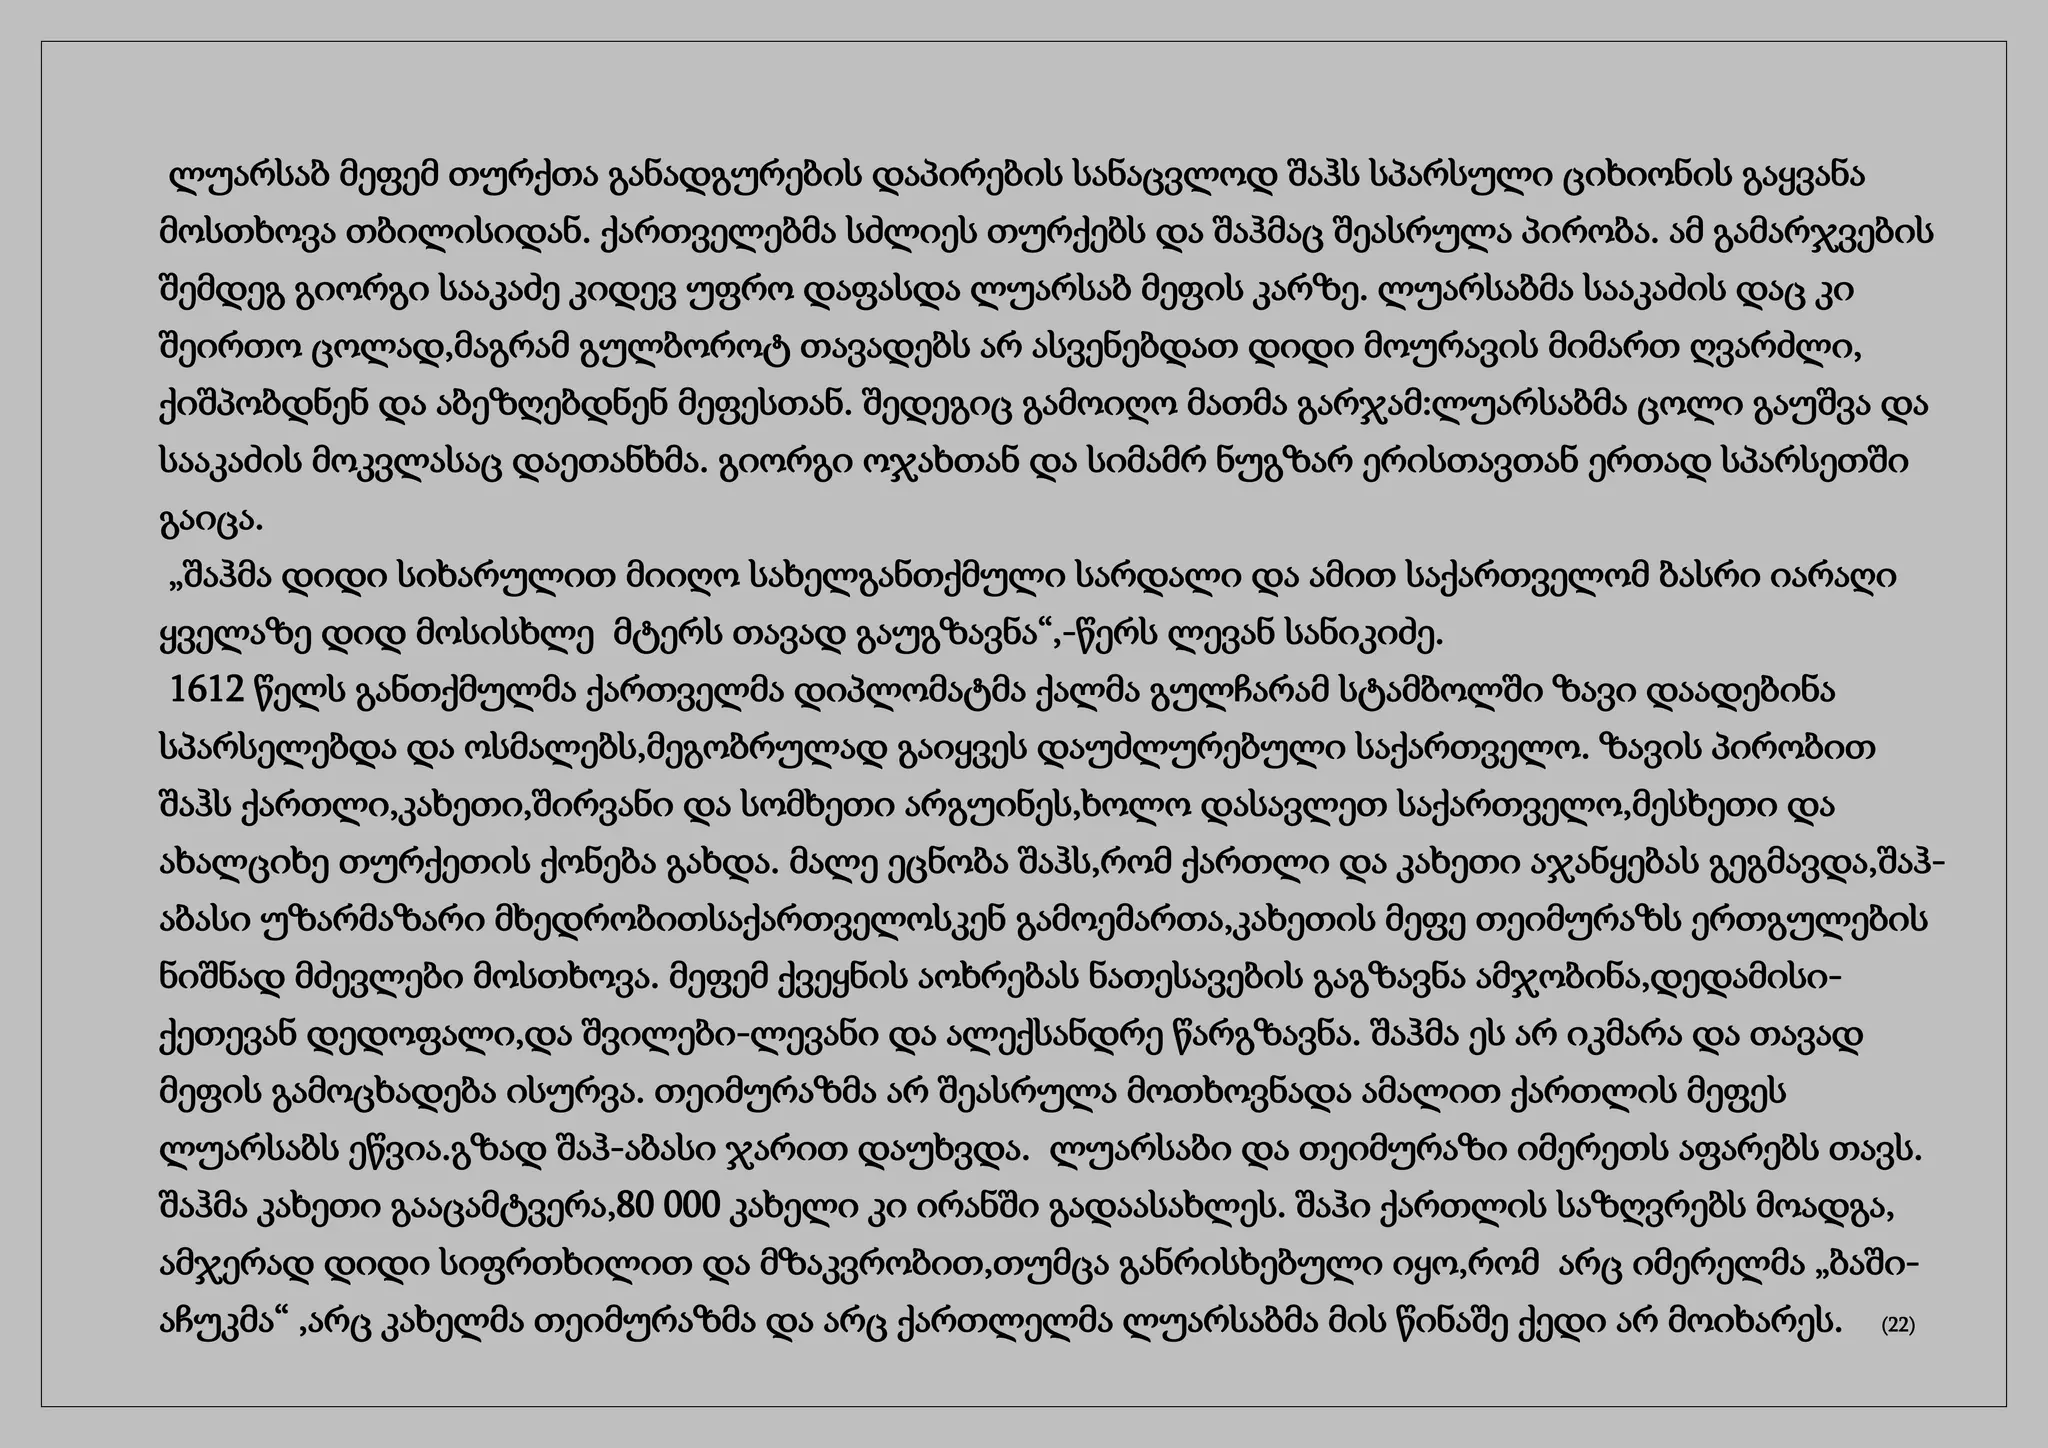 ლუარსაბ მეფემ თურქთა განადგურების დაპირების სანაცვლოდ შაჰს სპარსული ციხიონის გაყვანა
მოსთხოვა თბილისიდან. ქართველებმა სძლიეს თურქებს და შაჰმაც შეასრულა პირობა. ამ გამარჯვების
შემდეგ გიორგი სააკაძე კიდევ უფრო დაფასდა ლუარსაბ მეფის კარზე. ლუარსაბმა სააკაძის დაც კი
შეირთო ცოლად,მაგრამ გულბოროტ თავადებს არ ასვენებდათ დიდი მოურავის მიმართ ღვარძლი,
ქიშპობდნენ და აბეზღებდნენ მეფესთან. შედეგიც გამოიღო მათმა გარჯამ:ლუარსაბმა ცოლი გაუშვა და
სააკაძის მოკვლასაც დაეთანხმა. გიორგი ოჯახთან და სიმამრ ნუგზარ ერისთავთან ერთად სპარსეთში
გაიცა.
„შაჰმა დიდი სიხარულით მიიღო სახელგანთქმული სარდალი და ამით საქართველომ ბასრი იარაღი
ყველაზე დიდ მოსისხლე  მტერს თავად გაუგზავნა“,-წერს ლევან სანიკიძე.
1612 წელს განთქმულმა ქართველმა დიპლომატმა ქალმა გულჩარამ სტამბოლში ზავი დაადებინა
სპარსელებდა და ოსმალებს,მეგობრულად გაიყვეს დაუძლურებული საქართველო. ზავის პირობით
შაჰს ქართლი,კახეთი,შირვანი და სომხეთი არგუინეს,ხოლო დასავლეთ საქართველო,მესხეთი და
ახალციხე თურქეთის ქონება გახდა. მალე ეცნობა შაჰს,რომ ქართლი და კახეთი აჯანყებას გეგმავდა,შაჰ-
აბასი უზარმაზარი მხედრობითსაქართველოსკენ გამოემართა,კახეთის მეფე თეიმურაზს ერთგულების
ნიშნად მძევლები მოსთხოვა. მეფემ ქვეყნის აოხრებას ნათესავების გაგზავნა ამჯობინა,დედამისი-
ქეთევან დედოფალი,და შვილები-ლევანი და ალექსანდრე წარგზავნა. შაჰმა ეს არ იკმარა და თავად
მეფის გამოცხადება ისურვა. თეიმურაზმა არ შეასრულა მოთხოვნადა ამალით ქართლის მეფეს
ლუარსაბს ეწვია.გზად შაჰ-აბასი ჯარით დაუხვდა.  ლუარსაბი და თეიმურაზი იმერეთს აფარებს თავს.
შაჰმა კახეთი გააცამტვერა,80 000 კახელი კი ირანში გადაასახლეს. შაჰი ქართლის საზღვრებს მოადგა,
ამჯერად დიდი სიფრთხილით და მზაკვრობით,თუმცა განრისხებული იყო,რომ  არც იმერელმა „ბაში-
აჩუკმა“ ,არც კახელმა თეიმურაზმა და არც ქართლელმა ლუარსაბმა მის წინაშე ქედი არ მოიხარეს. (22)